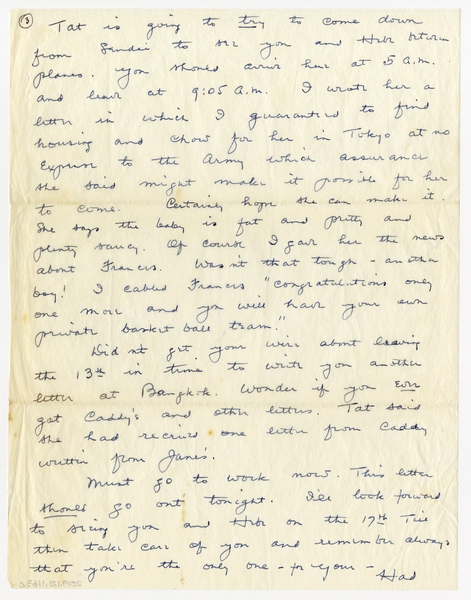 ③
Tat is going to try to come down
from Sendai to see you and Hebr between
planes. You should arrive here at 5 A.M.
and leave at 9:05 A.M. I wrote her a
letter in which I guaranteed to find
housing and chow for her in Tokyo at no
expense to the Army which assurance
she said might make it possible for her
to come. Certainly hope she can make it.
She says the baby is fat and pretty and
plenty saucy. Of course I gave her the news
about Frances. Wasn't that tough - another
boy! I cabled Frances "congratulations only
one more and you will have your own
private basket ball team."
Didn't get your wire about leaving
the 13th in time to write you another
letter at Bangkok. Wonder if you ever
got Caddy's and other letters. Tat said
she had received one letter from Caddy
written from Jane's.
Must go to work now. This letter
should go out tonight. I'll look forward
to seeing you and on the 17th Till
then take care of you and remember always
that you're the only one - for your -
Had